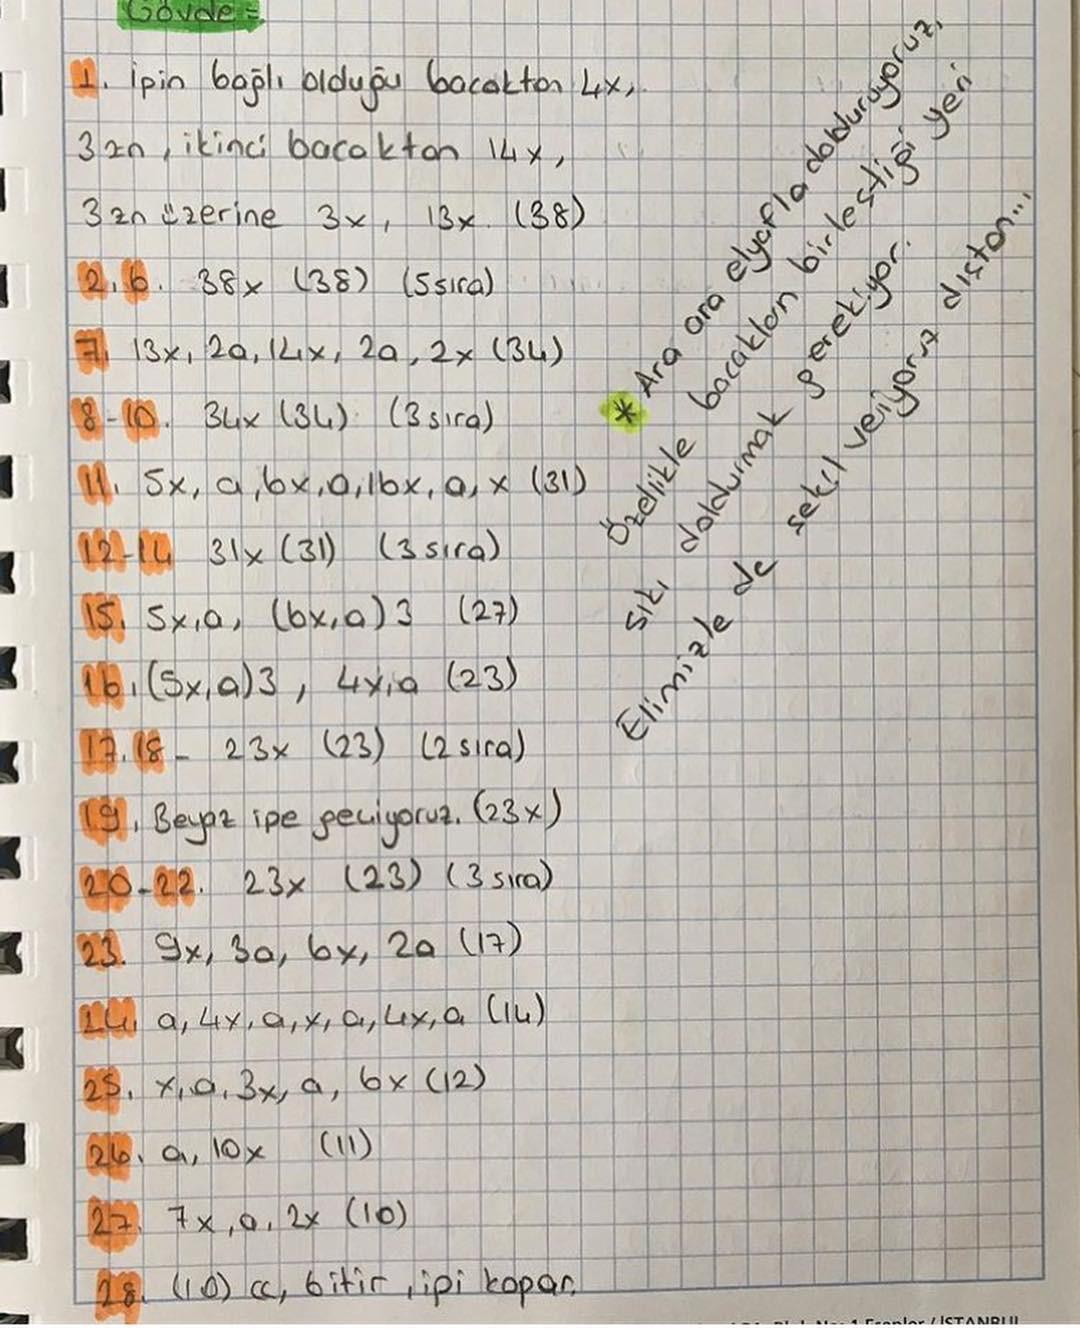 Gövde =
1. İpin bağlı olduğu bacaktan 4x,
3zn, ikinci bacaktan 14x,
3zn üzerine 3x, 13x. (38)
2.6. 38x (38) (5sıra)
7. 13x, 2a, 14x, 2a, 2x (34)
8-10. 34x (34) (3 sıra)
11. 5x, a, 6x, a, 16x, a, x (31)
12-14 31x (31) (3 sıra)
15. 5x, a, (6x, a) 3 (27)
16. (5x, a) 3, 4x, a (23)
17.18- 23x (23) (2 sıra)
19. Beyaz ipe geçiyoruz. (23x)
20-22. 23x (23) (3 sıra)
23. 9x, 3a, 6x, 2a (17)
24. a, 4x, a, x, a, 4x, a (14)
25. x, a, 3x, a, 6x (12)
26. a, 10x (11)
27. 7x, a, 2x (10)
28. (10) cc, bitir, ipi kopar.
* Ara ara elyafla dolduruyoruz,
Özellikle bacakların birleştiği yeri
sıkı doldurmak gerekiyor.
Elimizle de şekil veriyoruz dıştan...
İSTANBUL